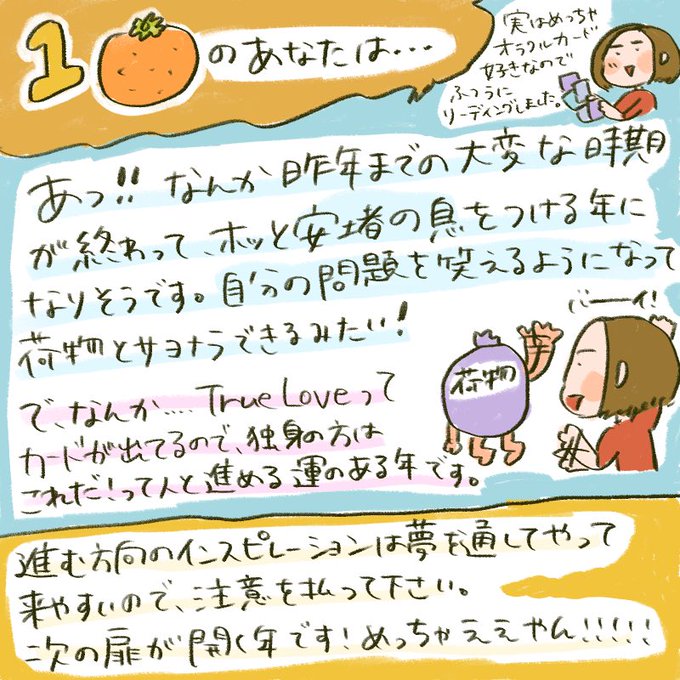 1のあなたは・・・
実はめっちゃ
オラクルカード
好きなので
ふつうに
リーディングしました。
あっ!! なんか昨年までの大変な時期
が終わって、ホッと安堵の息をつける年に
なりそうです。自分の問題を笑えるようになって
荷物とサヨナラできるみたい!
バーーイ!
荷物
で、なんか.... True Loveって
カードが出てるので、独身の方は
これだ!って人と進める運のある年です。
進む方向のインスピレーションは夢を通してやって
来やすいので、注意を払って下さい。
次の扉が開く年です!めっちゃええやん!!!!!